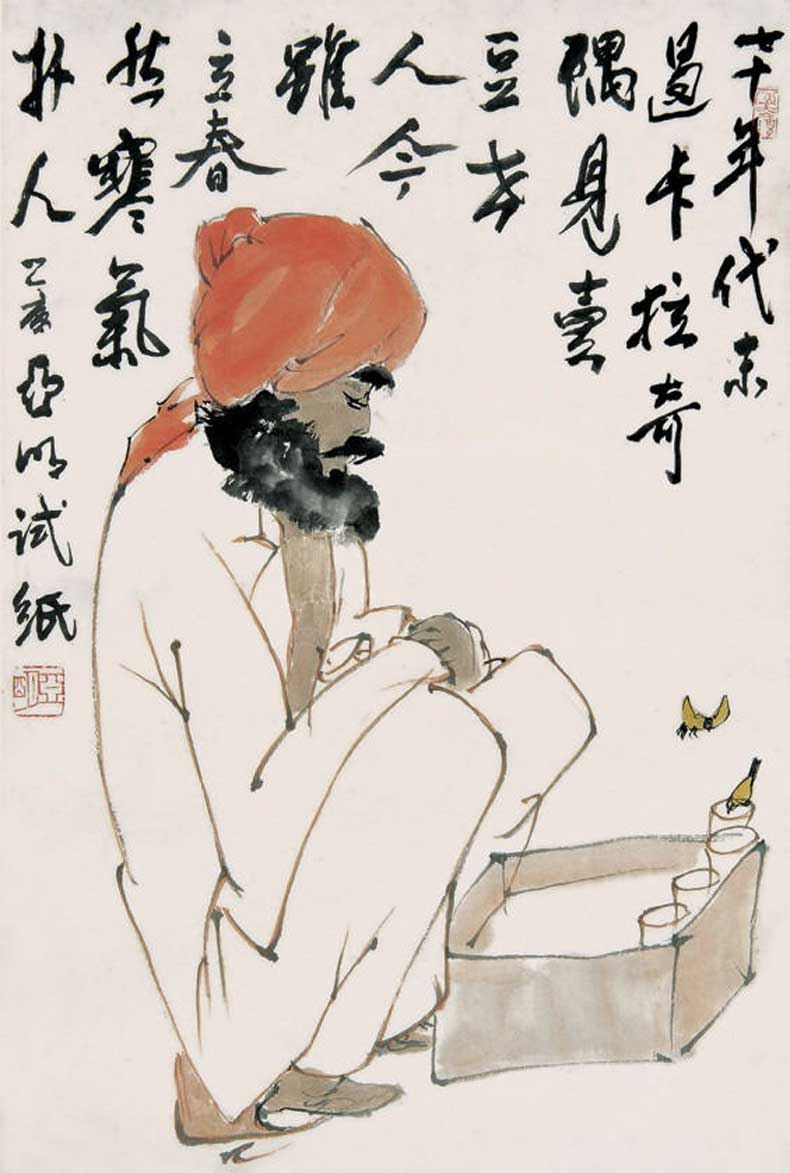 七十年代末
過卡拉奇
偶見賣
豆老
人今
雖
立春
然寒氣
扑人 乙亥亞明試紙
亞明